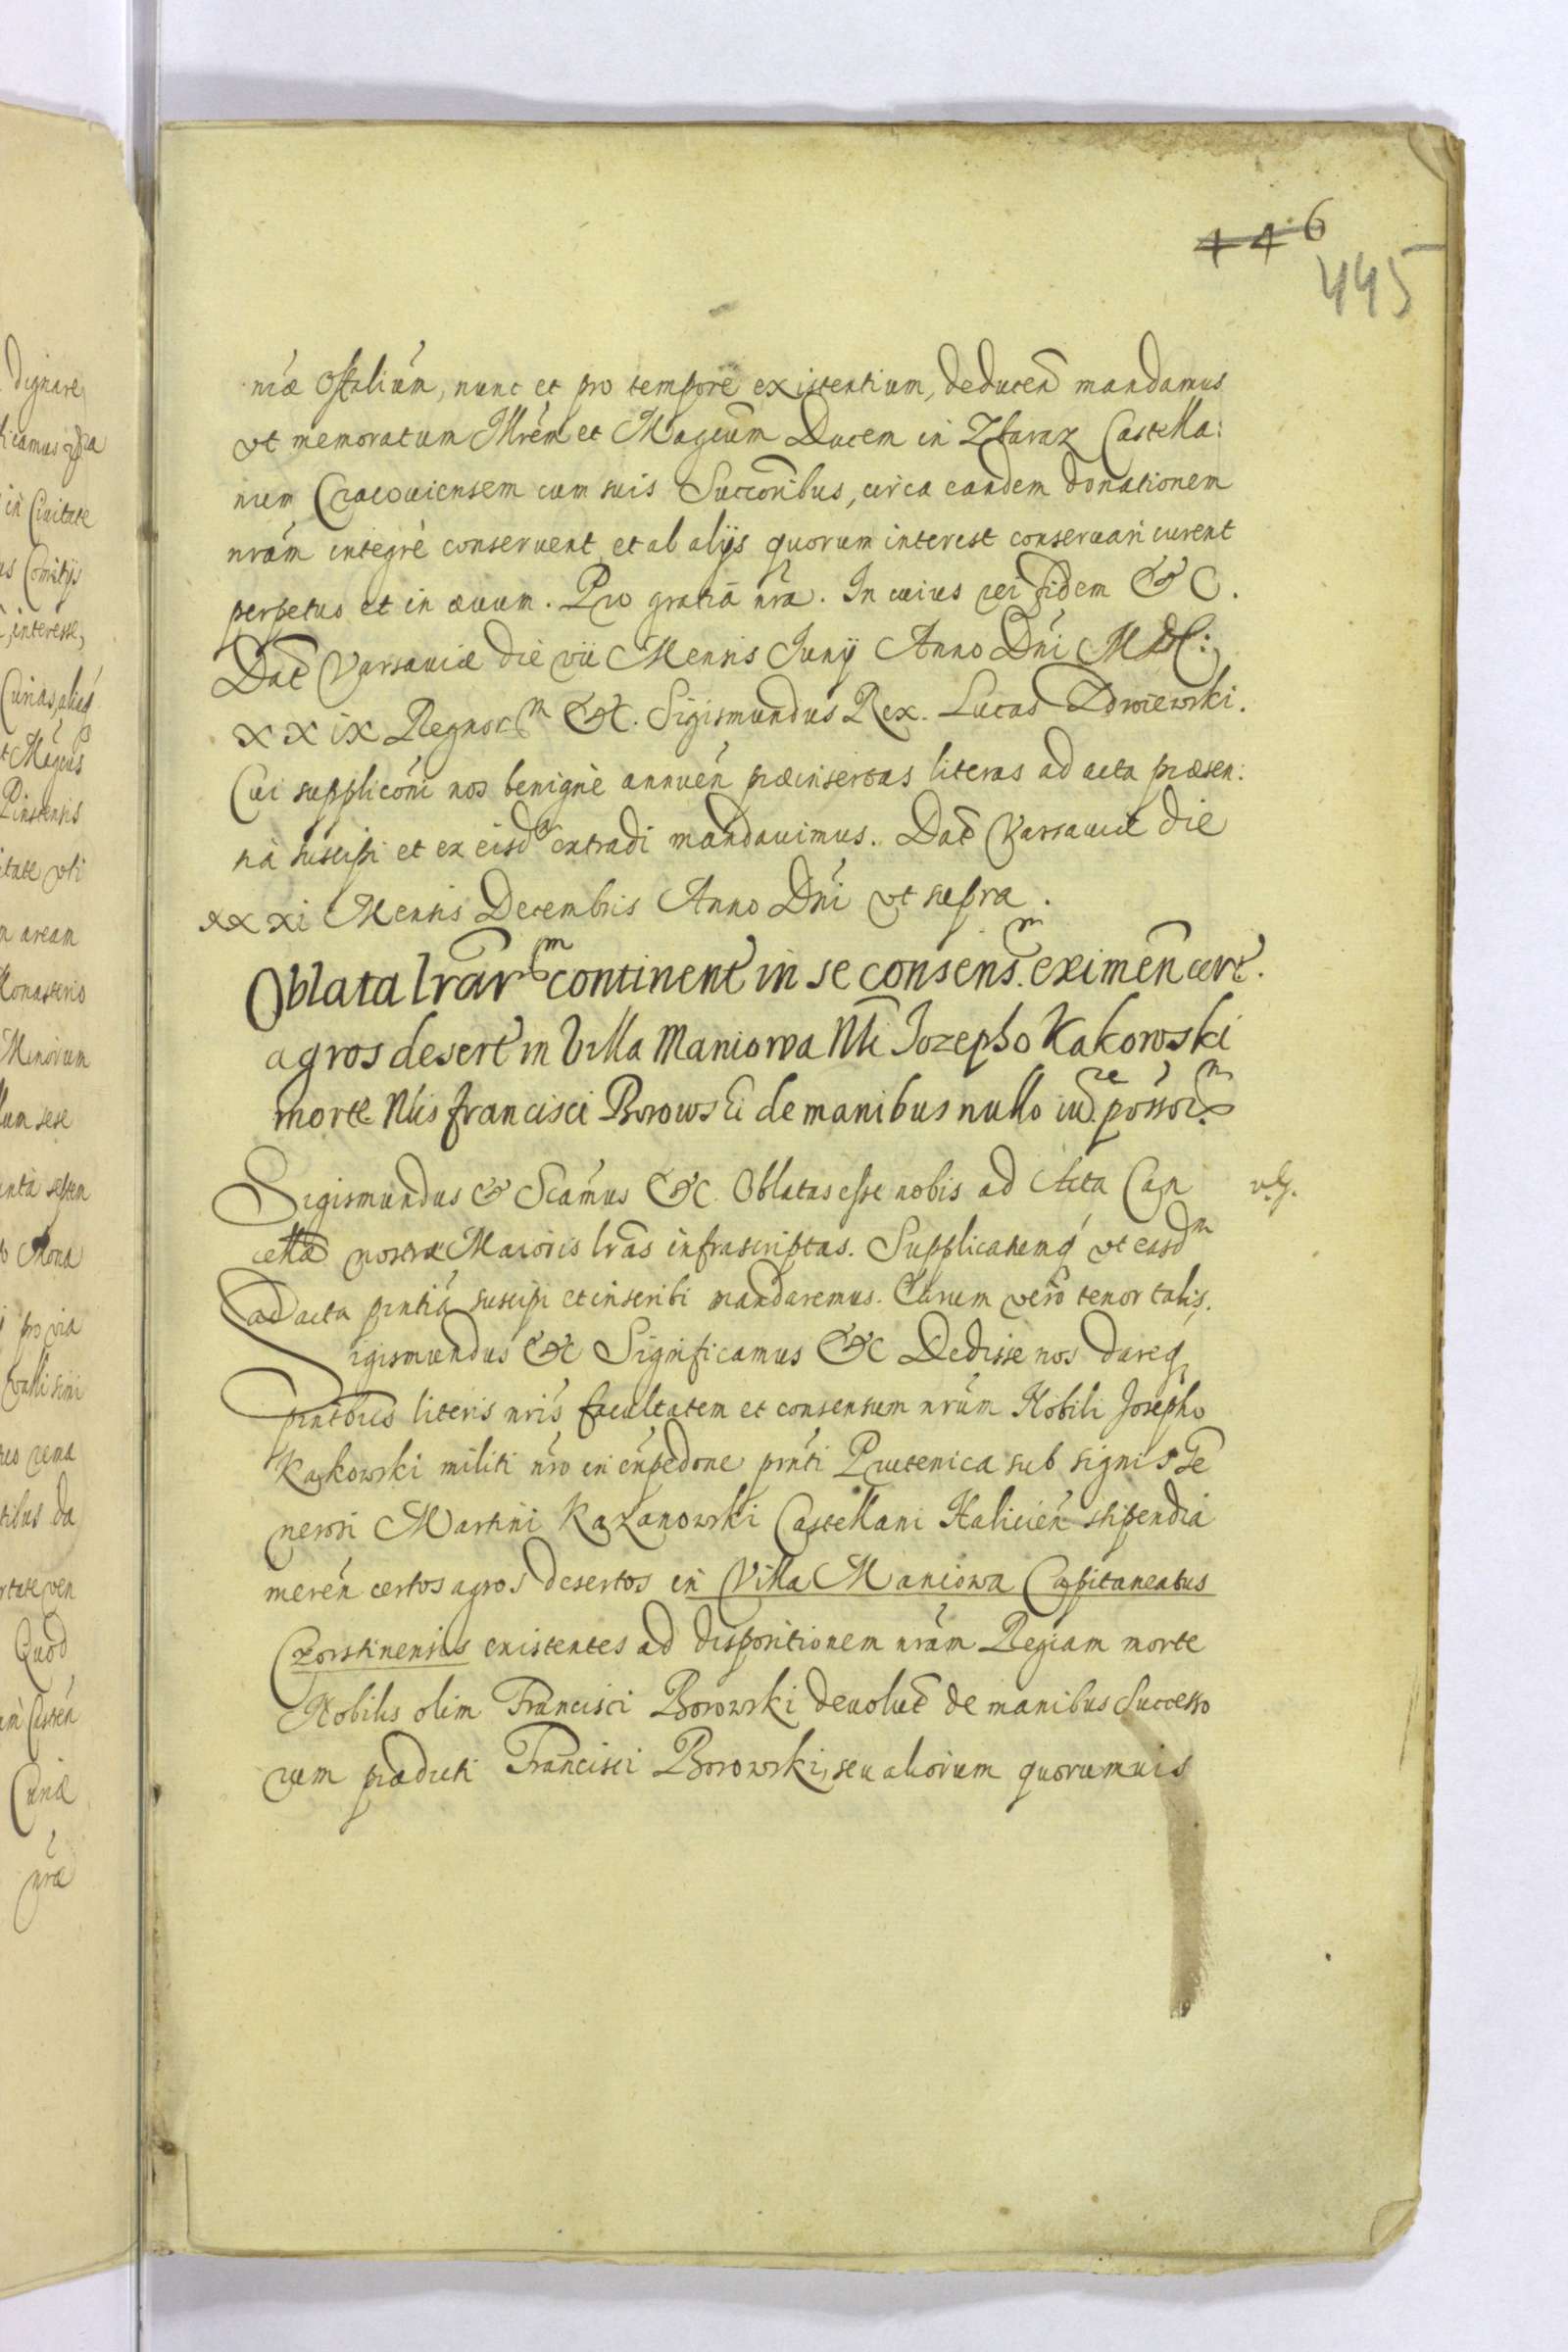 446
445
niæ Offaliúm, nunc et pro tempore existentium, deducen̄ mandamus
vt memoratum Illrém et Magcum̄ Ducem in Zbaraz Castella:
num Cracouiensem cum suis Succoribus, circa eandem donationem
nrám integrè conseruent, et ab alijs quorum interest conseruari curent
perpetuo et in æuum. Pro gratiā nrā. In cuius rei fidem & C.
Dat̄ Varsauiæ die vii Mensis Junij Anno Dni MDC:
xxix Regnorm &c. Sigismundus Rex. Lucas Zdroiewski.
Cui suppliconi nos benignè annuen̄ præinsertas literas ad acta præsen:
tia suscipi et ex eisdm extradi mandauimus. Dat̄ Varsauiæ die
xxxi Mensis Decembris Anno Dni vt supra.
Oblata lrārm continent in se consensm eximen̄ cert.
agros desert in Villa Maniowa Nli Jozepho Kakowski
morte Nlis francisci Borowski de manibus nullo iure possorm
Sigismundus & Scamus &c. Oblatas esse nobis ad Acta Can
cellæ nostræ Maioris lras infrascriptas. Supplicatumq vt easdm
ad acta pntia suscipi et inscribi mandaremus. Earum vero tenor talis.
Sigismundus &c Significamus &c Dedisse nos dareq
pntibus literis nris facultatem et consensum nrum Nobili Josepho
Kakowski militi nro in expedone pnti Prutenica sub signis Ge
nerosi Martini Kazanowski Castellani Halicien̄ stipendia
meren̄ certos agros desertos in Villa Maniowa Capitaneatus
Czorstinensis existentes ad dispositionem nram Regiam morte
Nobilis olim Francisci Borowski deuolut̄ de manibus Successo
rum prædicti Francisci Borowski, seu aliorum quorumuis